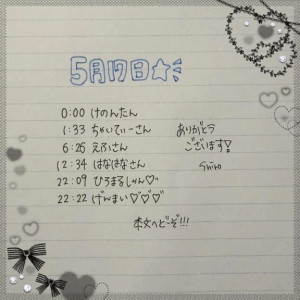 5月17日☆彡
0:00 けのんたん
1:33 ちゃいてぃーさん
6:26 えふさん
12:34 はなはなさん
22:09 ひろまるしゃん♡
22:22 げんまい♡♡♡
ありがとう
ございます!
Shiho
本文へどーぞ!!!